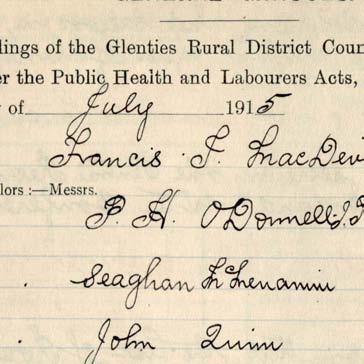 dings of the Glenties Rural District Coun
er the Public Health and Labourers Acts,
y of July 1915
Francis T. MacDev
lors :—Messrs.
P. H. O'Donnell, J.P
Seaghan McMenamin
John Quinn